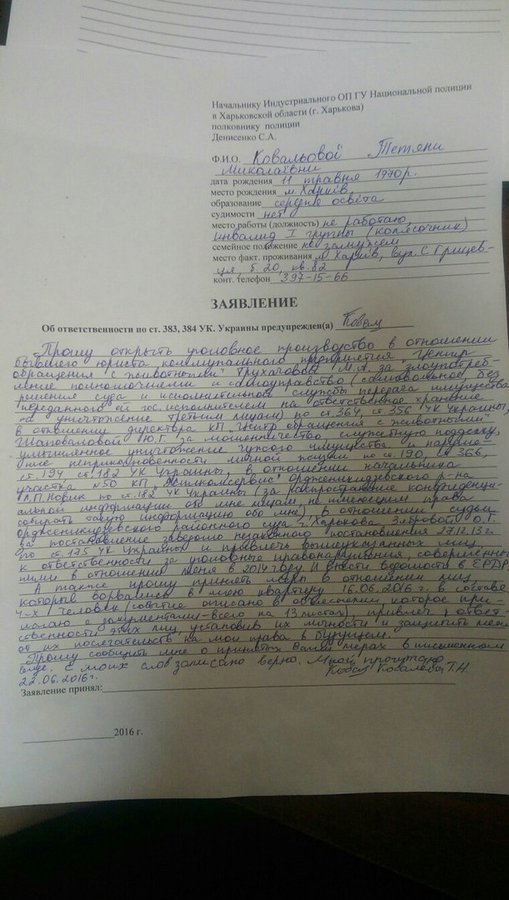 Начальнику Индустриального ОП ГУ Национальной полиции
в Харьковской области (г. Харькова)
полковнику полиции
Денисенко С.А.
Ф.И.О. Ковальової Тетяни
Миколаївни
дата рождения 11 травня 1970р.
место рождения м.Харків,
образование середня освіта
судимости нет
место работы (должность) не работаю,
инвалид I группы (колясочник)
семейное положение не замужем
место факт. проживания м.Харків, вул. С. Грицев-
ця, б 20, кв. 82
конт. телефон 397-15-66
ЗАЯВЛЕНИЕ
Об ответственности по ст. 383, 384 УК. Украины предупрежден(а)
Прошу открыть уголовное производство в отношении
бывшего юриста коммунального предприятия "Центр
обращения с животными" М.А. за злоупотреб-
ление полномочиями и самоуправство (самовольное, без
решения суда и исполнительной службы передача имущества
переданного ей гос. исполнителем на ответственное хранение
на уничтожение третьим лицам) по ст.364, ст 356 УК Украины,
в отношении директора КП "Центр обращения с животными"
Шаповаловой Ю.Г. за мошенничество, служебную подделку,
умышленное уничтожение чужого имущества и наруше-
ние неприкосновенности частной жизни по ст.190, ст 366,
ст. 194 ст. 182 УК Украины, в отношении начальника
участка №50 КП "Жилкомсервис" Орджоникидзевского р-на
П.П. Новик по ст.182 УК Украины (за распространение конфиденци-
альной информации обо мне лицам, не имеющим права
собирать такую информацию обо мне), в отношении судьи
Орджоникидзевского районного суда г.Харькова О.Г.
за постановление заведомо неправосудного постановления 27.12.13г.
по ст.375 УК Украины и привлечь вышеуказанных лиц
к ответственности за уголовные правонарушения, совершенные
ими в отношении меня в 2014 году и внести ведомости в ЕРДР.
А также прошу принять меры в отношении лиц,
которые ворвались в мою квартиру 16.06.2016 г. в составе
4-х человек (событие описано в объяснении, которое при-
лагаю с документами – всего на 13 листах), привлечь к ответ-
ственности этих лиц, установив их личности и защитить меня
от их посягательств на мои права в будущем.
Прошу сообщить мне о принятых Вами мерах в письменном
виде. С моих слов записано верно. Мной прочитано.
22.06.2016г. Ковалева Т.Н.
Заявление принял:
2016 г.